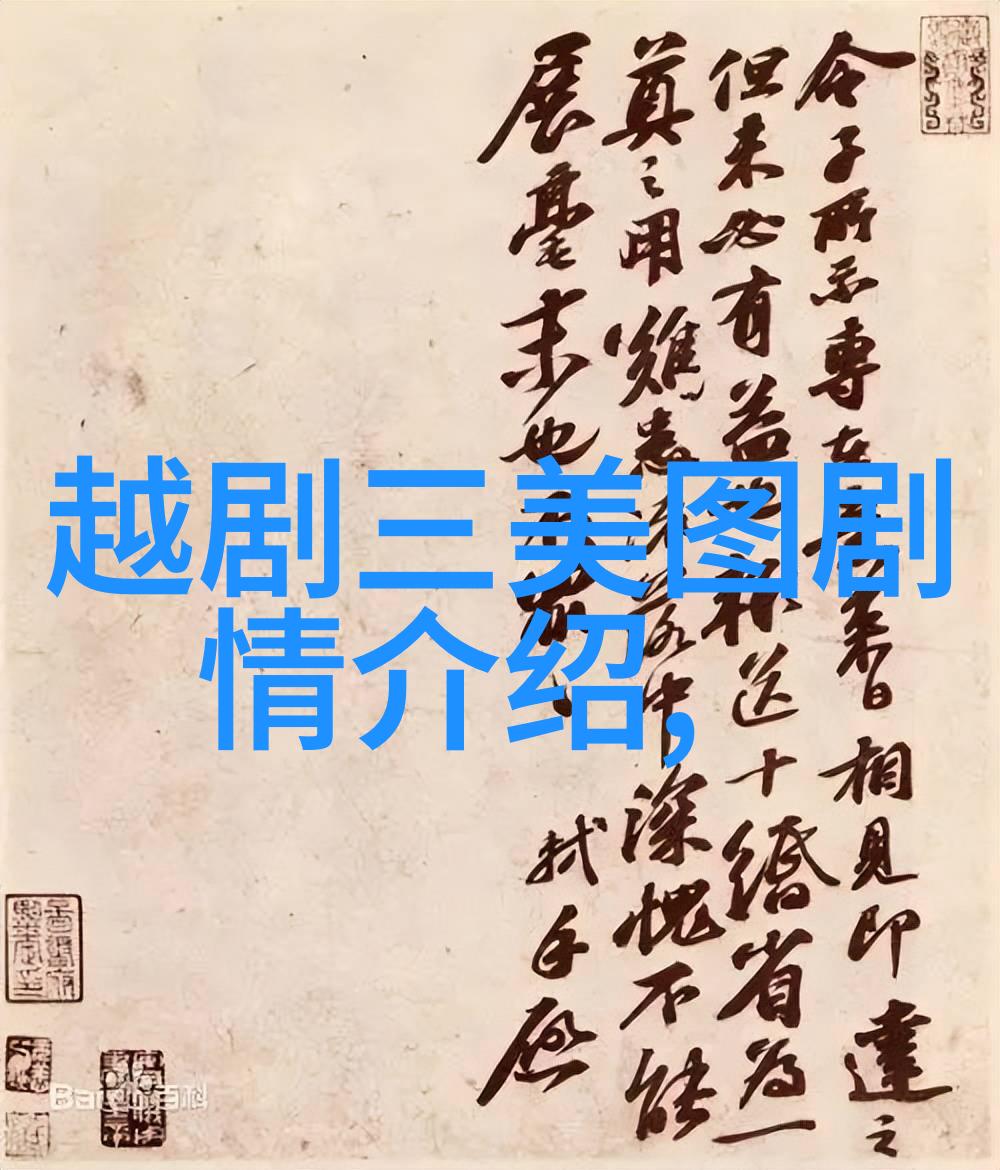 越剧三美图剧
情介绍,
令子所示專在來日相見即達之
但未必有益送十緡省為一
奠之用雖中深愧不能
展毫末也
軾手啟
Bai百科